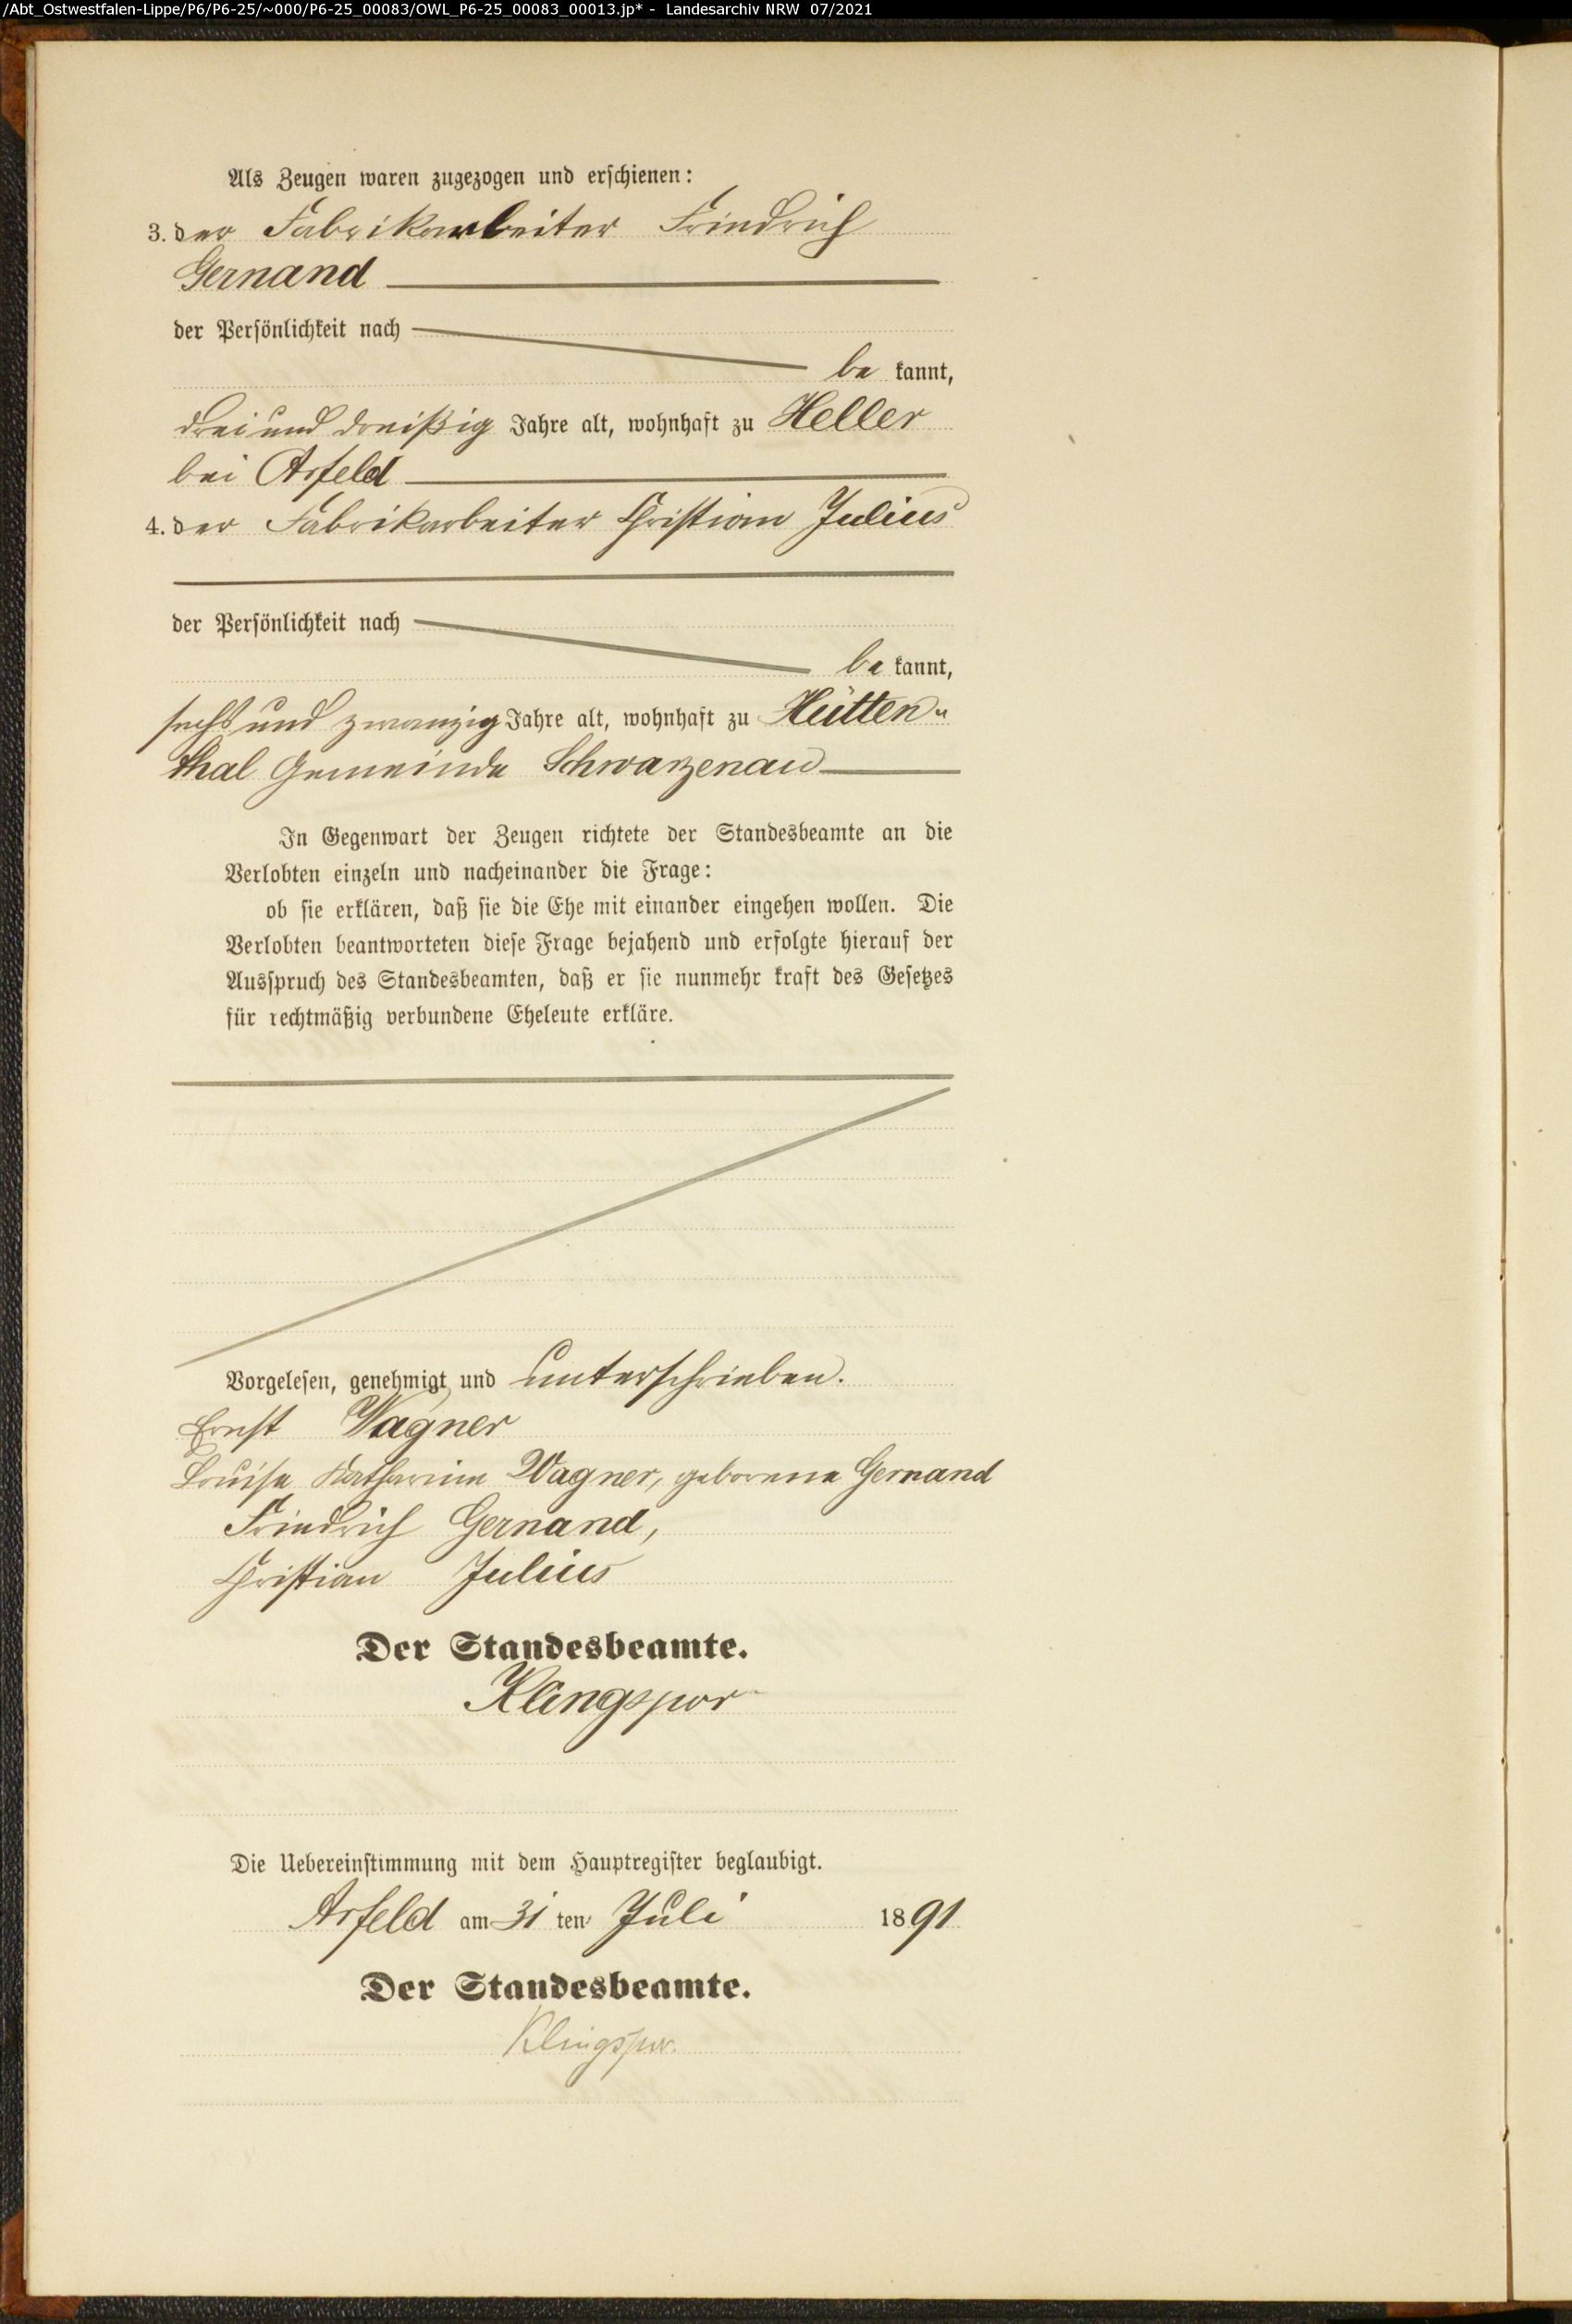 /Abt_Ostwestfalen-Lippe/P6/P6-25/~000/P6-25_00083/OWL_P6-25_00083_00013.jp* - Landesarchiv NRW 07/2021
Als Zeugen waren zugezogen und erschienen:
3. der Fabrikarbeiter Friedrich
Gernand
der Persönlichkeit nach
be kannt,
drei und dreißig Jahre alt, wohnhaft zu Heller
bei Arfeld
4. der Fabrikarbeiter Christian Julius
der Persönlichkeit nach
be kannt,
sechs und zwanzig Jahre alt, wohnhaft zu Hütten"
thal Gemeinde Schwarzenau
In Gegenwart der Zeugen richtete der Standesbeamte an die
Verlobten einzeln und nacheinander die Frage:
ob sie erklären, daß sie die Ehe mit einander eingehen wollen. Die
Verlobten beantworteten diese Frage bejahend und erfolgte hierauf der
Ausspruch des Standesbeamten, daß er sie nunmehr kraft des Gesetzes
für rechtmäßig verbundene Eheleute erkläre.
Vorgelesen, genehmigt und unterschrieben.
Ernst Wagner
Louise Katharine Wagner, geborene Gernand
Friedrich Gernand,
Christian Julius
Der Standesbeamte.
Klingspor
Die Uebereinstimmung mit dem Hauptregister beglaubigt.
Arfeld am 31 ten Juli 1891
Der Standesbeamte.
Klingspor.